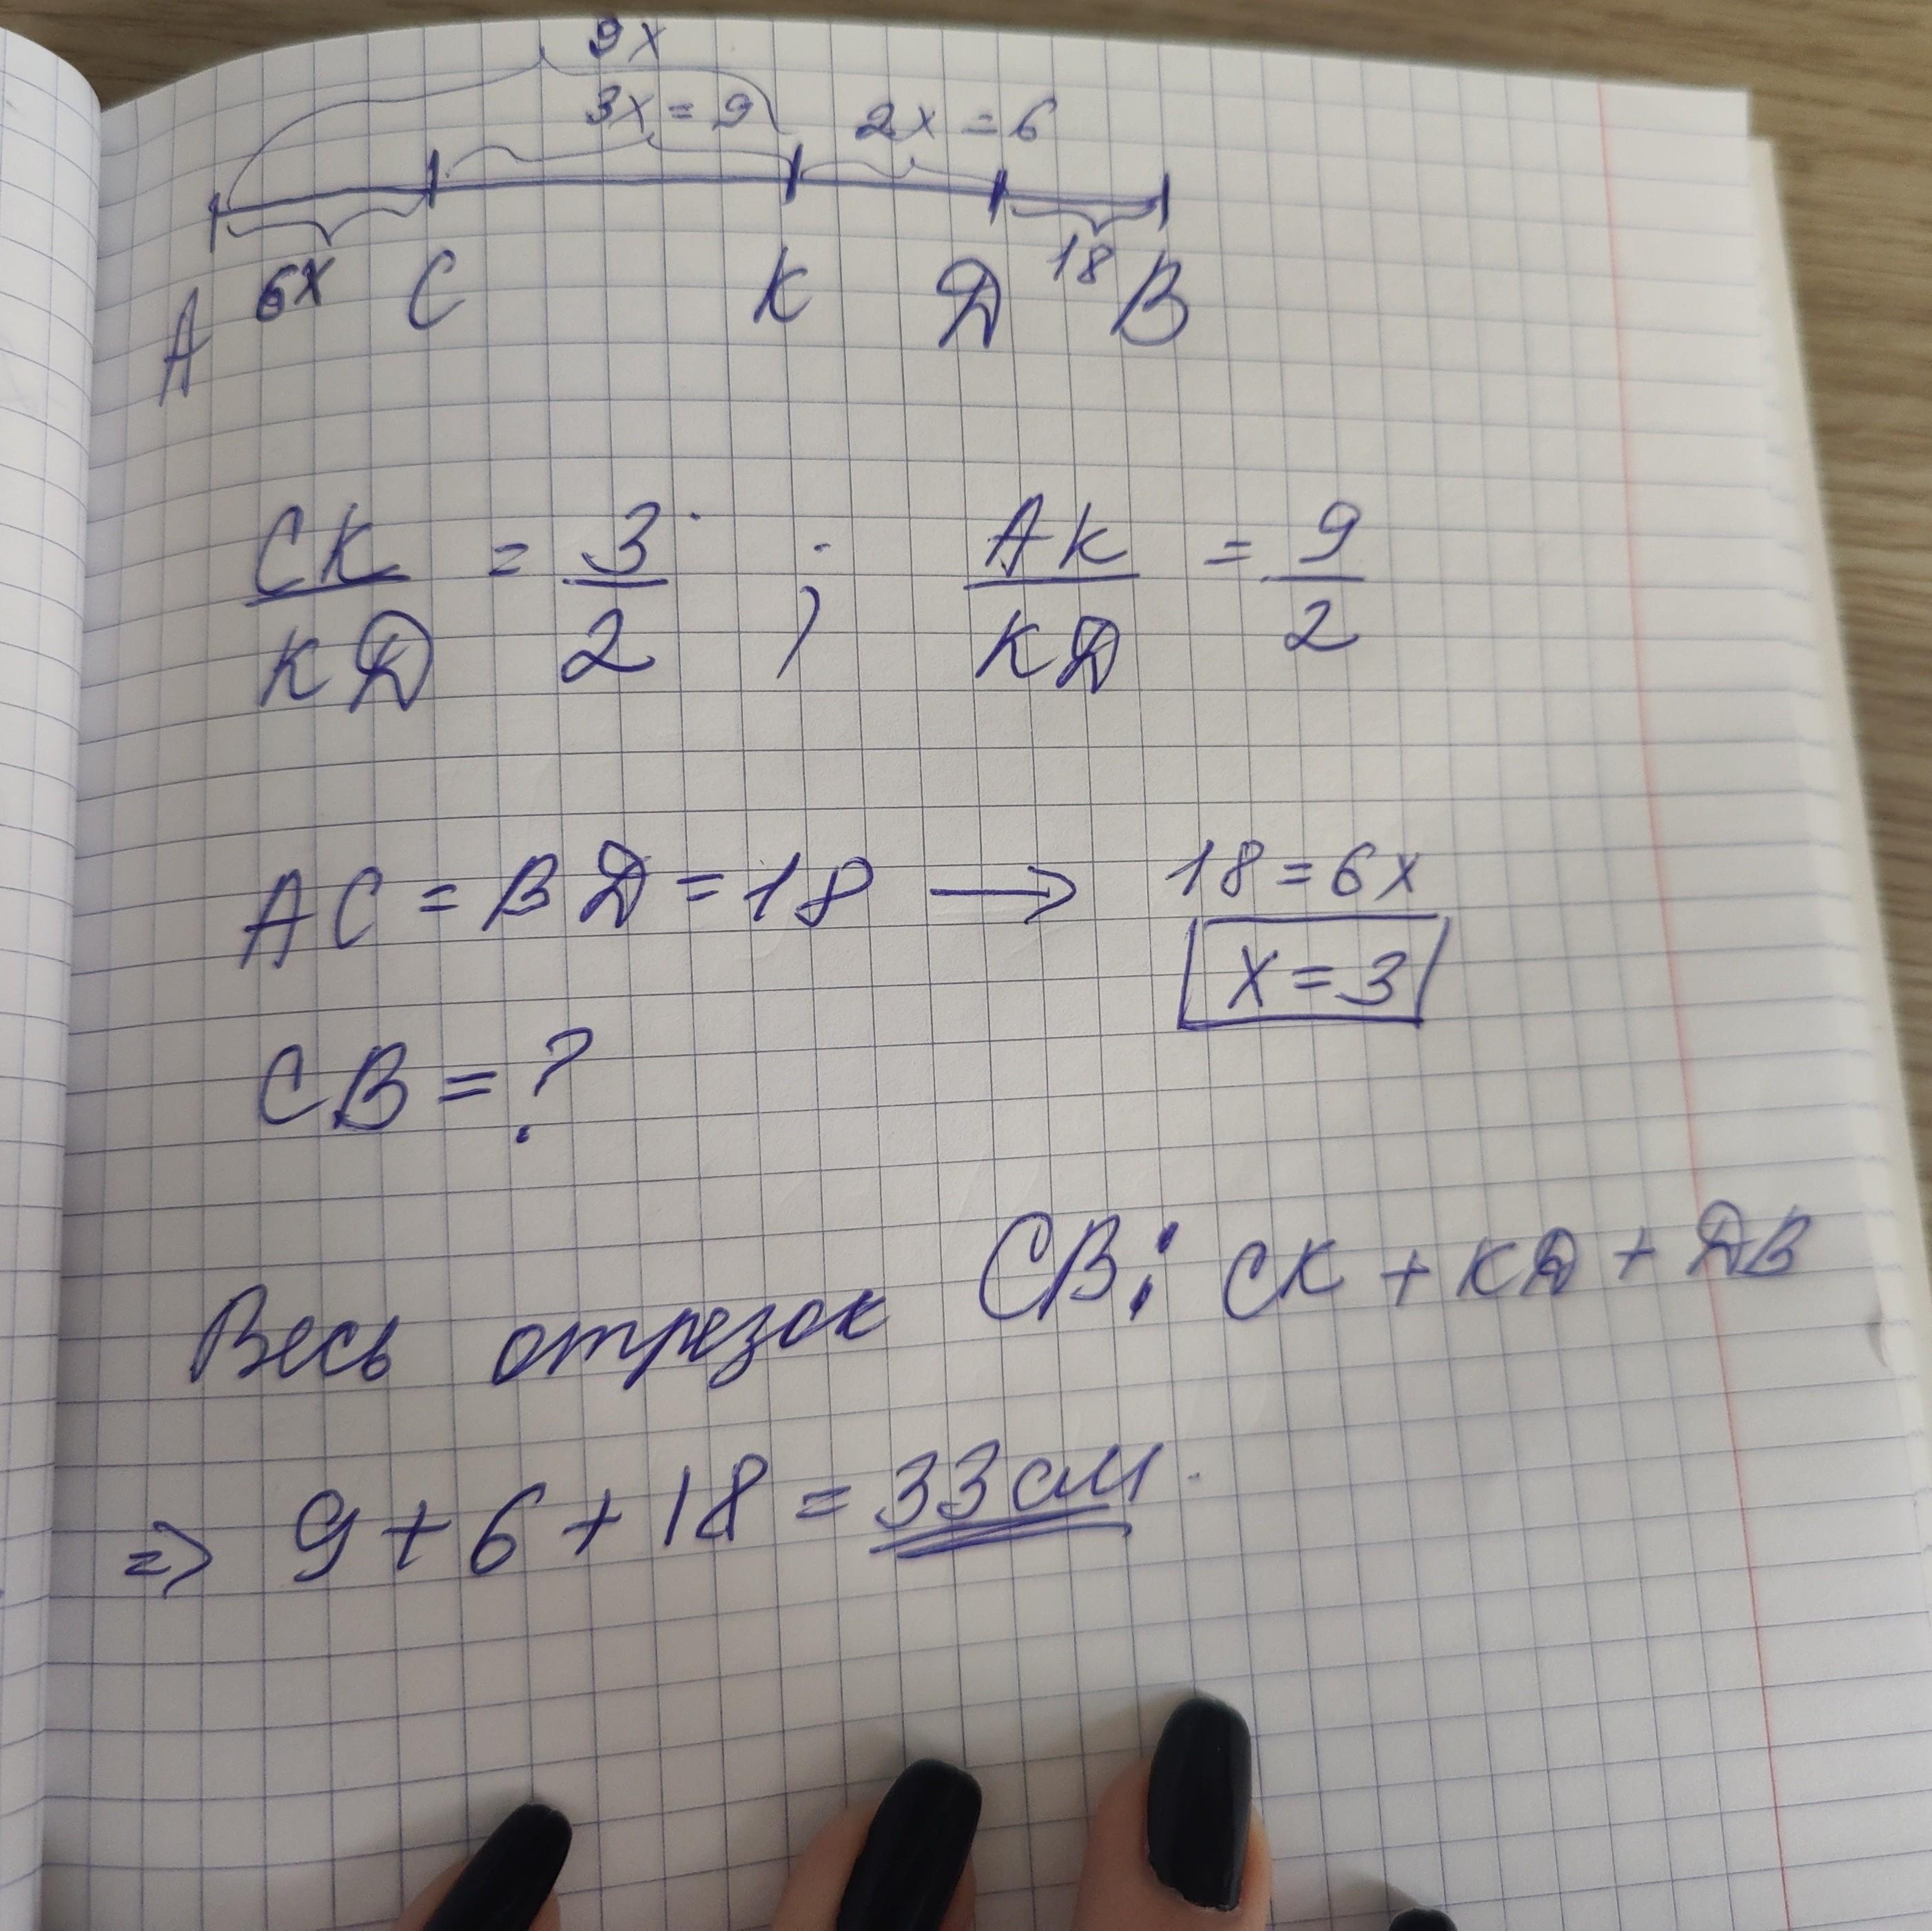 9x
3x = 9 2x = 6
A 6x C K Д 18 B
CK/KД = 3/2 ; AK/KД = 9/2
AC = BД = 18 → 18 = 6x
x = 3
CB = ?
Весь отрезок CB: CK + KД + ДB
=> 9 + 6 + 18 = 33 см.